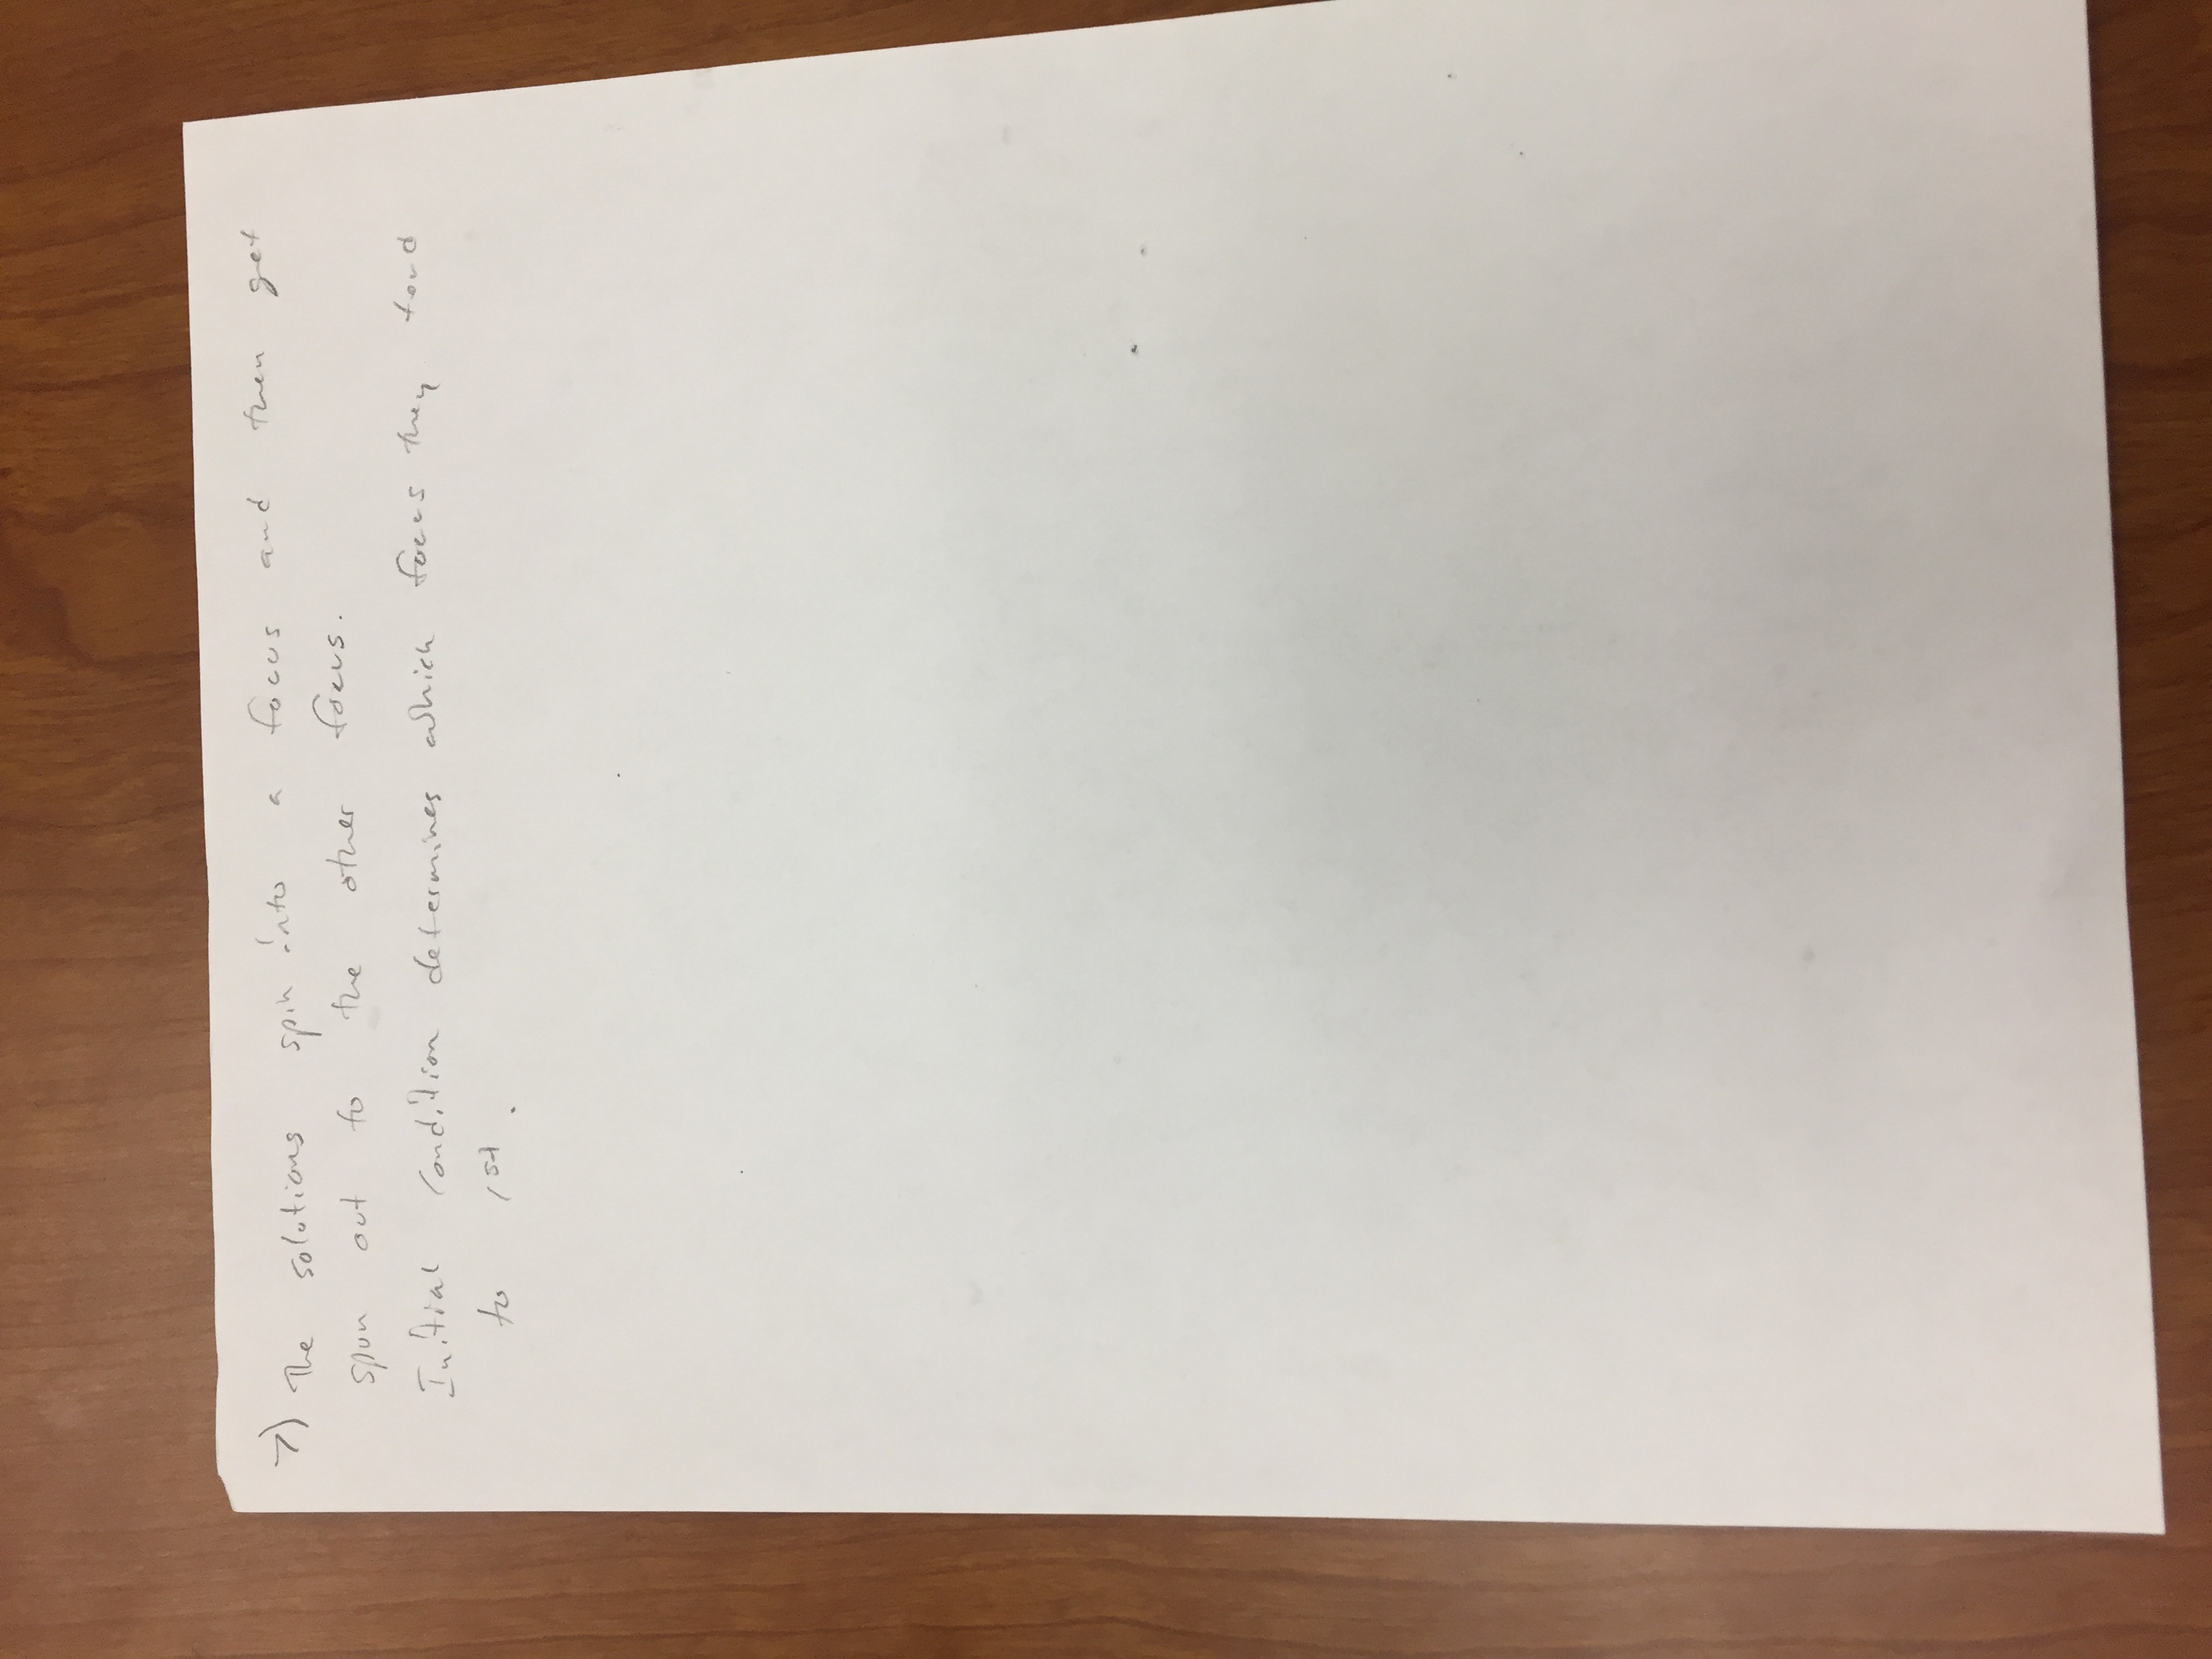 7) The solutions spin into a focus and then get
spun out to the other focus.
Initial condition determines which focus they tend
to 1st.